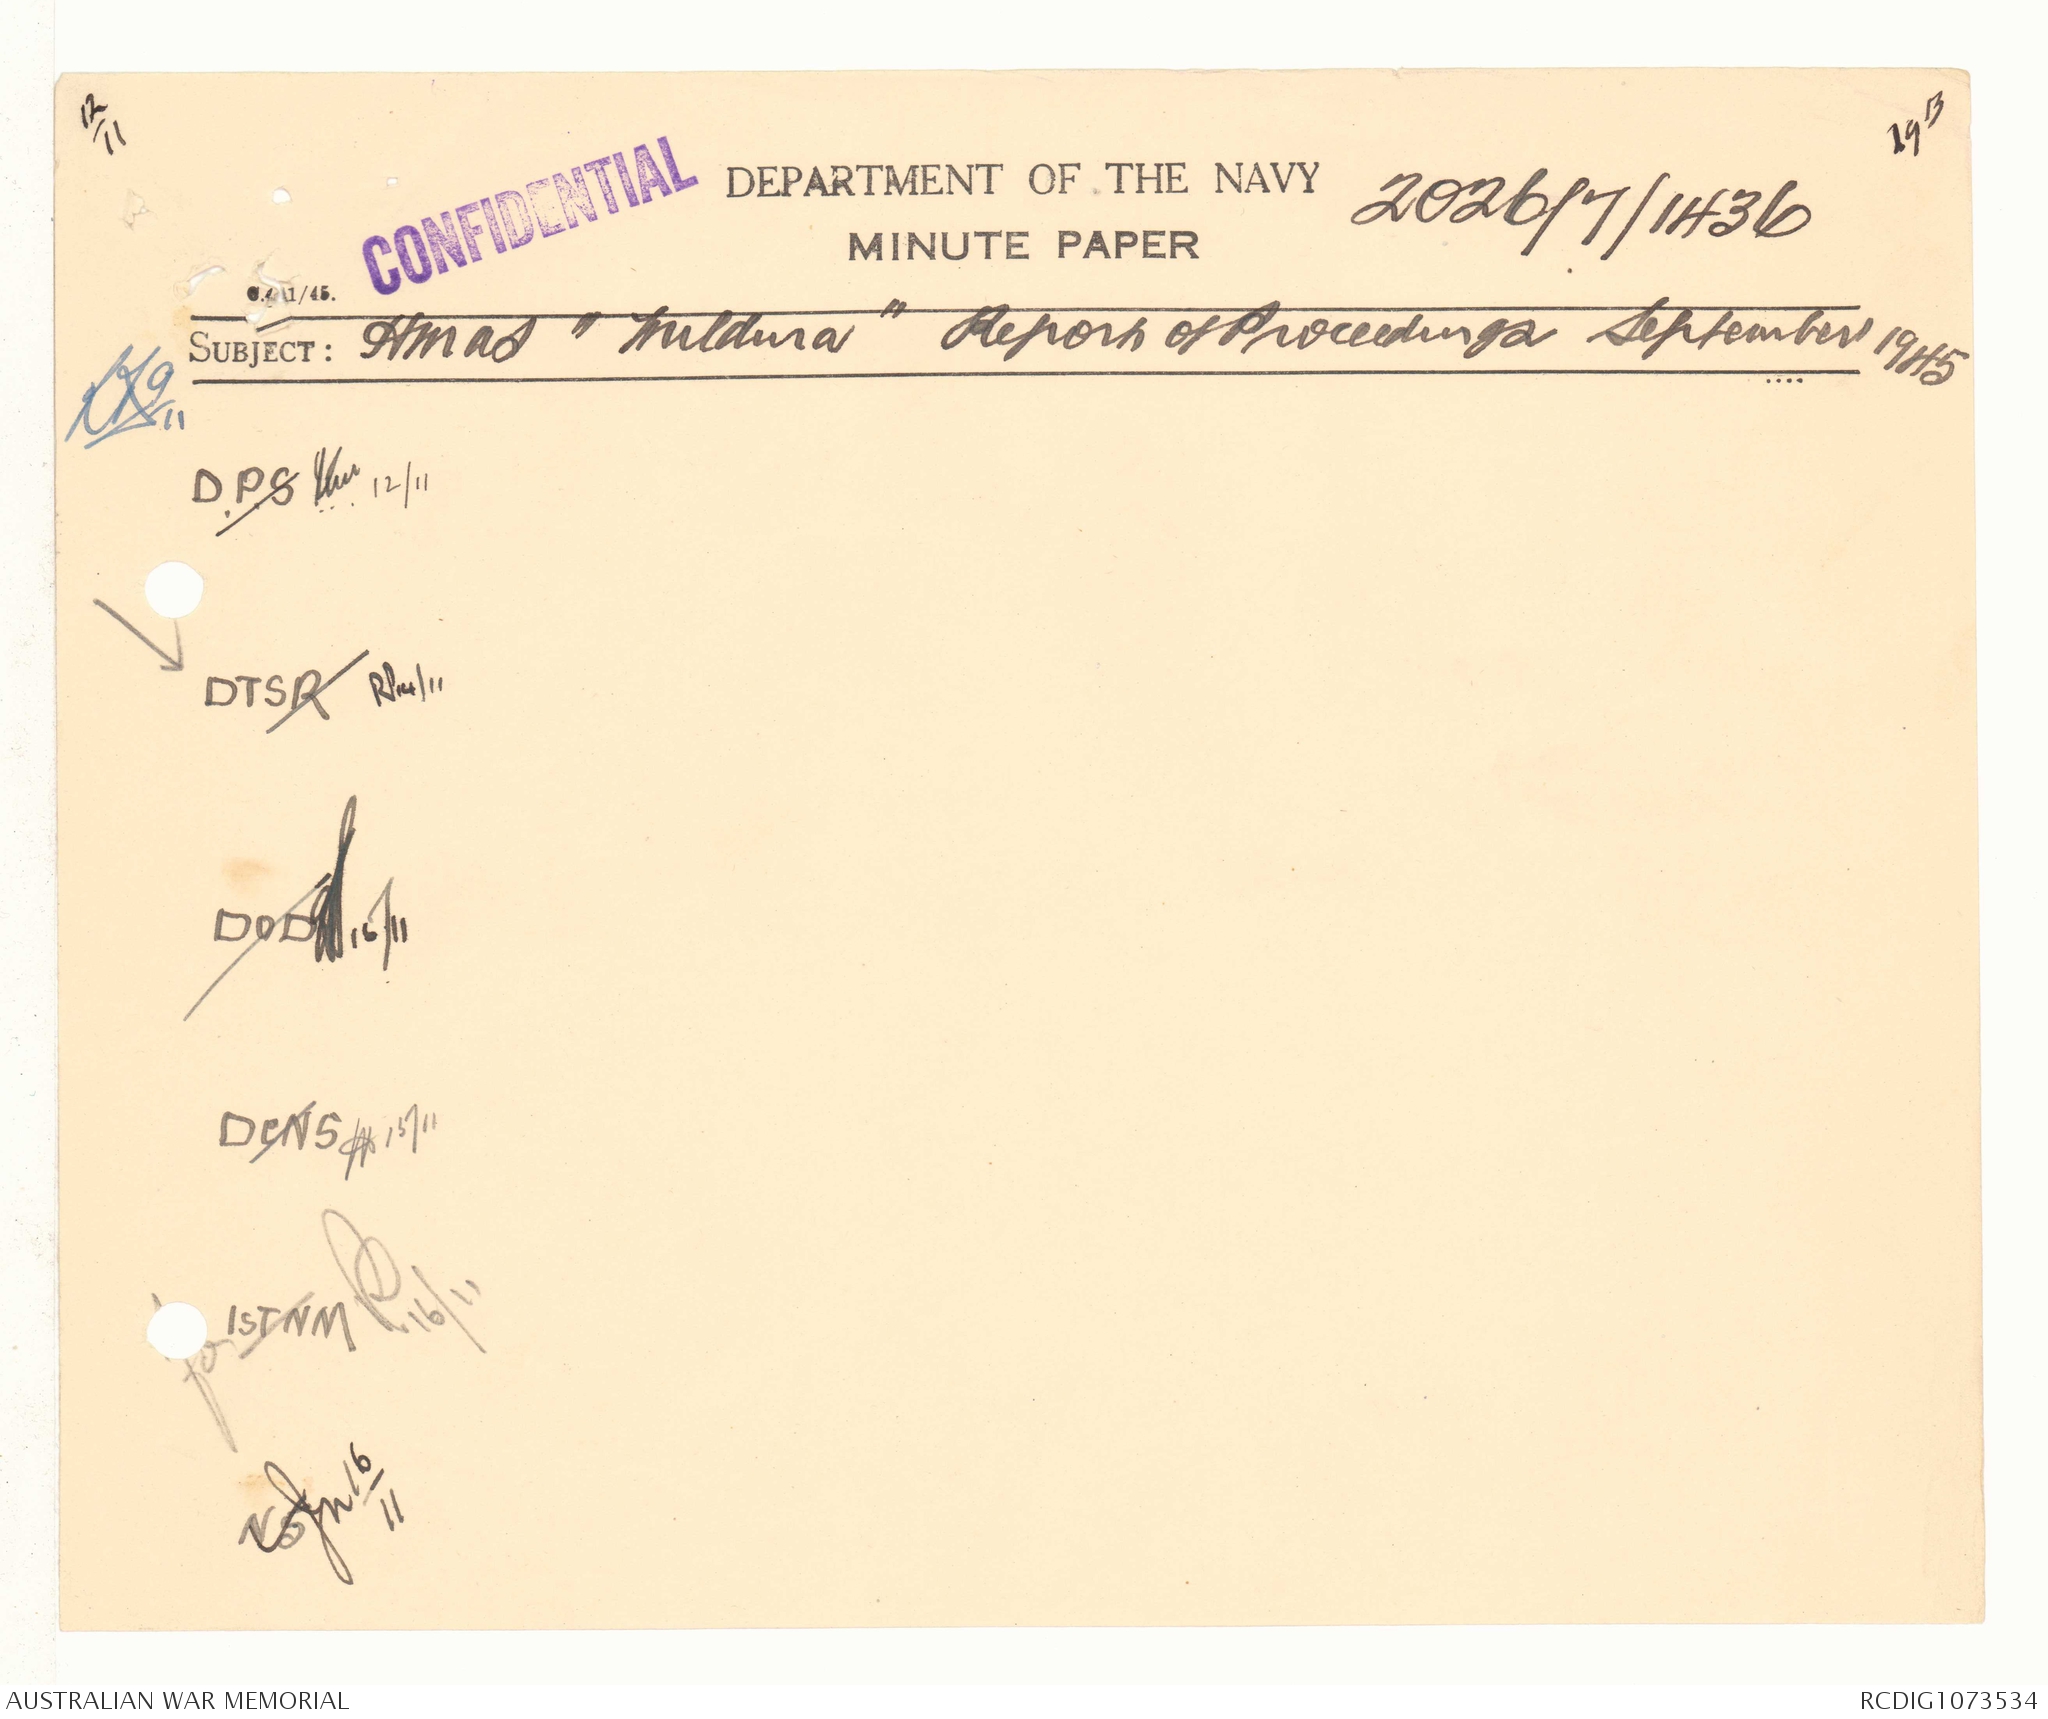 12/11
19B
CONFIDENTIAL
DEPARTMENT OF THE NAVY
2026/7/1436
MINUTE PAPER
1/45.
SUBJECT: HMAS "Mildura" Report of Proceedings September 1945
9/11
D.P.S 12/11
DTSR 14/11
DOD 16/11
DCNS 15/11
for 1STNM 16/11
NS 16/11
AUSTRALIAN WAR MEMORIAL
RCDIG1073534